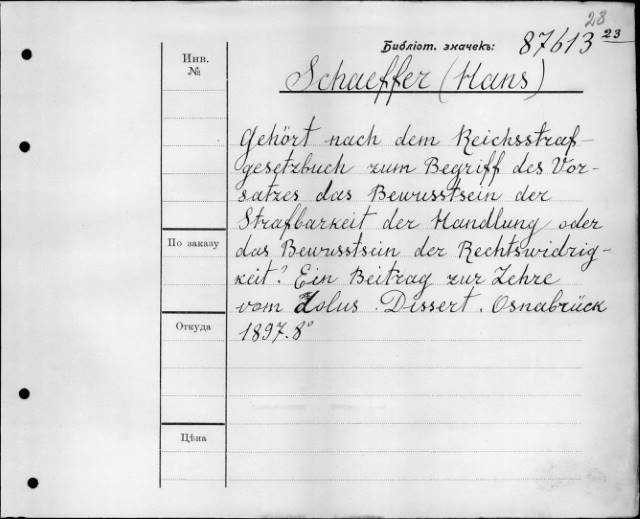 28
Библіот. значекъ: 87613 23
Инв.
№
Schaeffer (Hans)
Gehört nach dem Reichsstraf-
gesetzbuch zum Begriff des Vor-
satzes das Bewusstsein der
Strafbarkeit der Handlung oder
По заказу
das Bewusstsein der Rechtswidrig-
keit? Ein Beitrag zur Lehre
vom Dolus. Dissert. Osnabrück
Откуда
1897. 8°
Цѣна